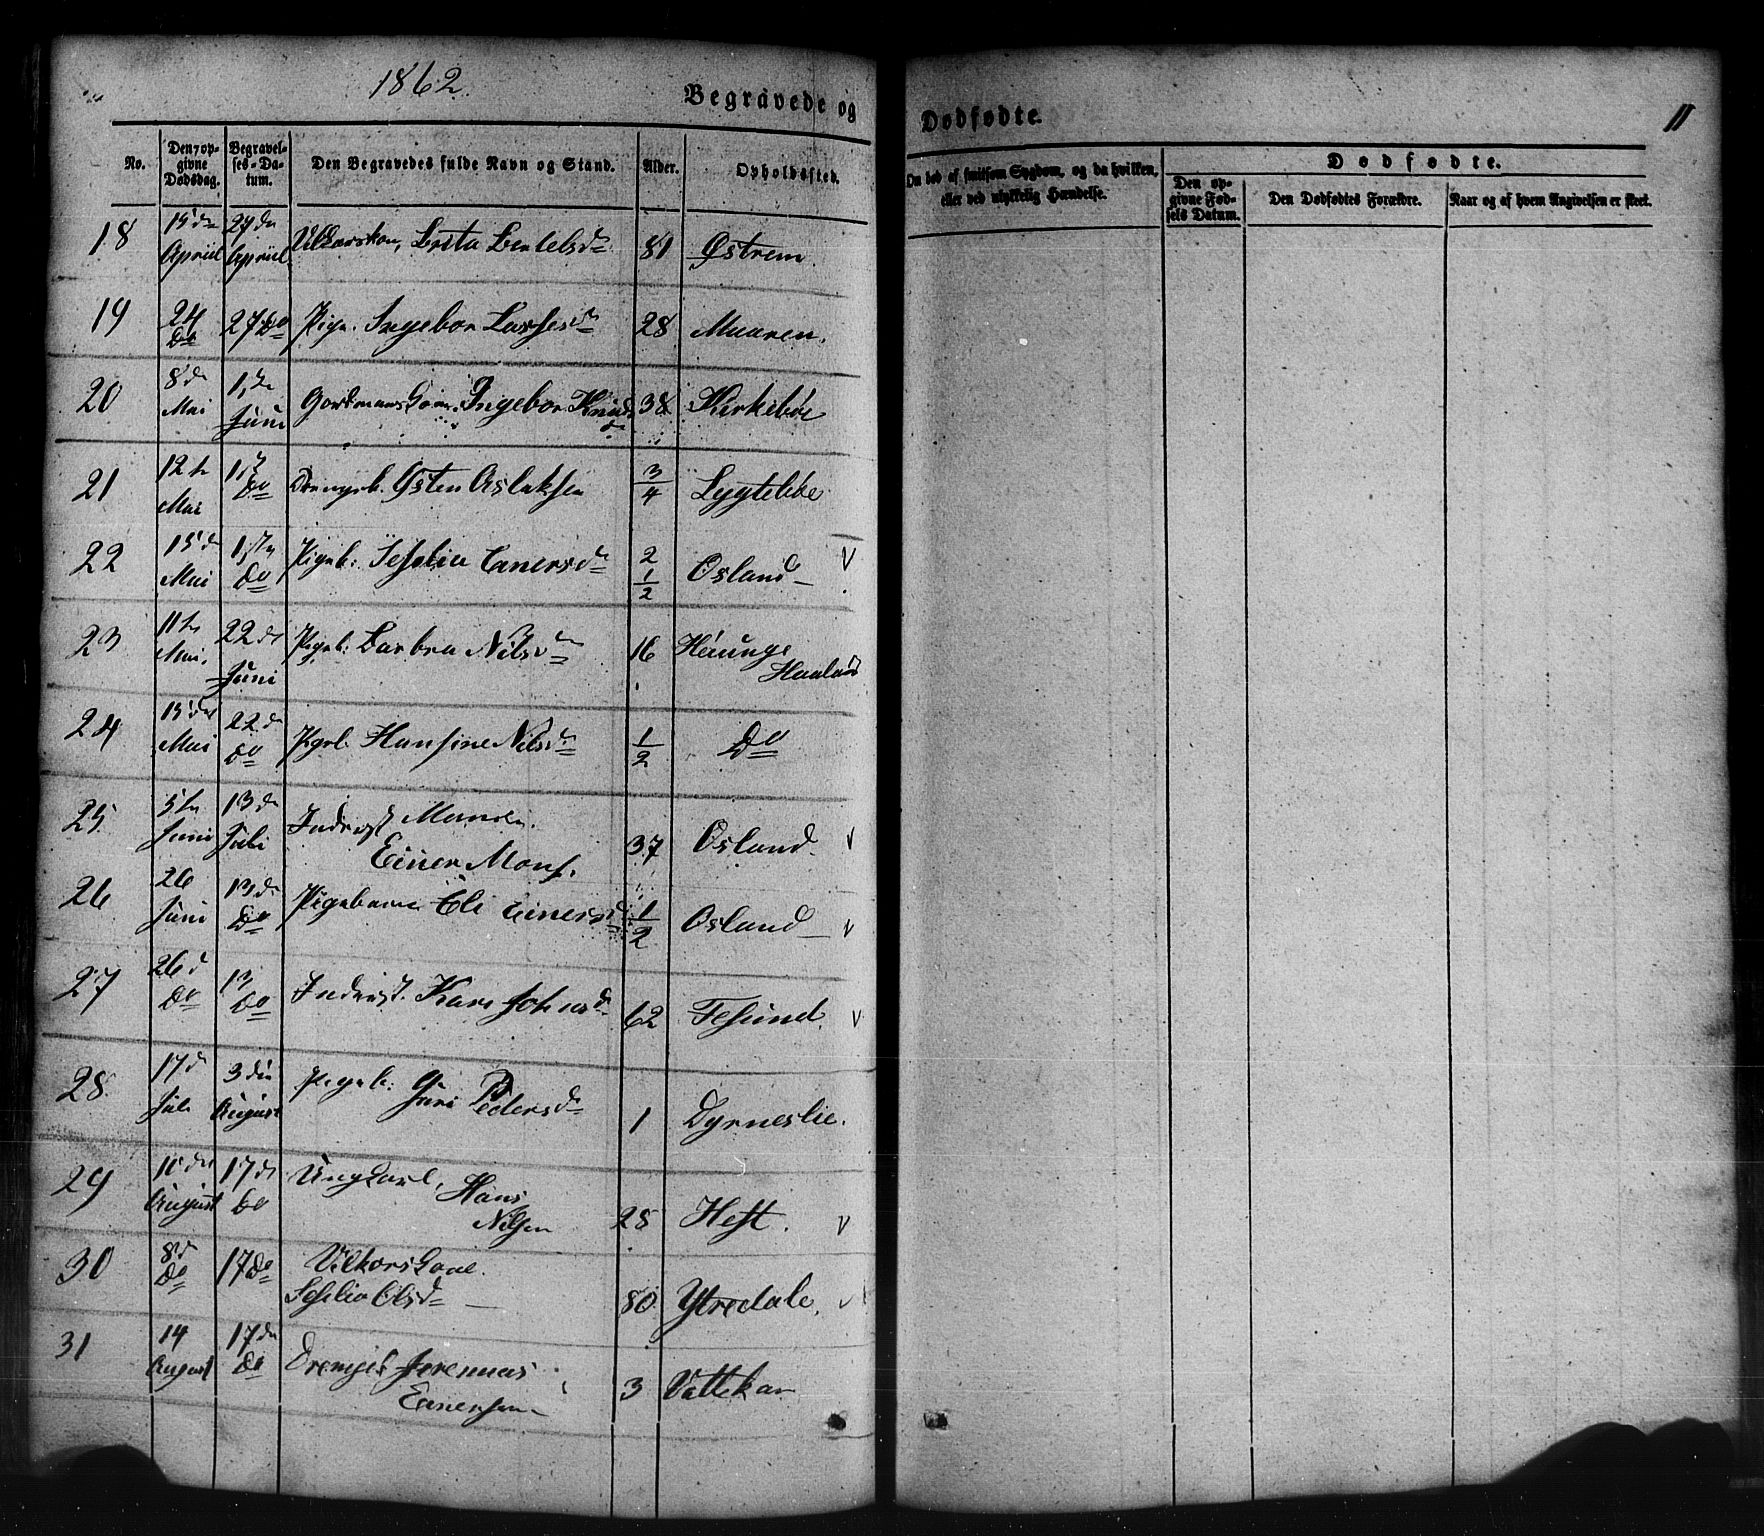 1862
Begravede og
Dødfødte.
11
No.
Den opgivne Dødsdag.
Begravelses-Datum.
Den Begravedes fulde Navn og Stand.
Alder.
Opholdssted.
Om død af smitsom Sygdom, og da hvilken, eller ved ulykkelig Hændelse.
Dødfødte.
Den opgivne Fødsels Datum.
Den Dødfødtes Forældre.
Naar og af hvem Angivelsen er skeet.
18 15de April 27de April Vilkorskone, Brita Bertelsd 81 Østrem
19 24 Do 27 Do Pige. Ingebor Larsesd 28 Maaren.
20 8de Mai 1ste Juni Ingebor Knudsd 38 Kirkebøe
21 12te Mai 1ste Do Drengeb. Østen Aslaksen 3/4 Lygtebøe
22 15de Mai 1ste Do Pigeb: Sesselia Einersd 2 1/2 Osland V
23 11te Mai. 22de Juni Pigeb: Barbra Nilsd 16 Høiunge Haaland
24 15de Mai 22de Do Pigeb. Hansine Nilsd 1/2 Do
25. 5te Juni 13de Juli Inderst Manden.
Einer Mons. 37 Osland V
26 26 Juni 13de Do Pigebarn Eli Einersd 1/2 Osland V
27 26d Do 13 Do Inderst. Kari Johnsd 62 Tesund. V
28. 17d Juli 3die August Pigeb: Guri Pedersd 1 Dyrneslie.
29 10de August 17de Do Ungkarl, Hans
Nilsen 25 Heft. V
30 8d Do 17 Do Vilkorskone.
Seselia Olsd 80 Ytredale. V
31 14 August 17de Do Drengeb Jeremias
Einersen 3 Vattekar